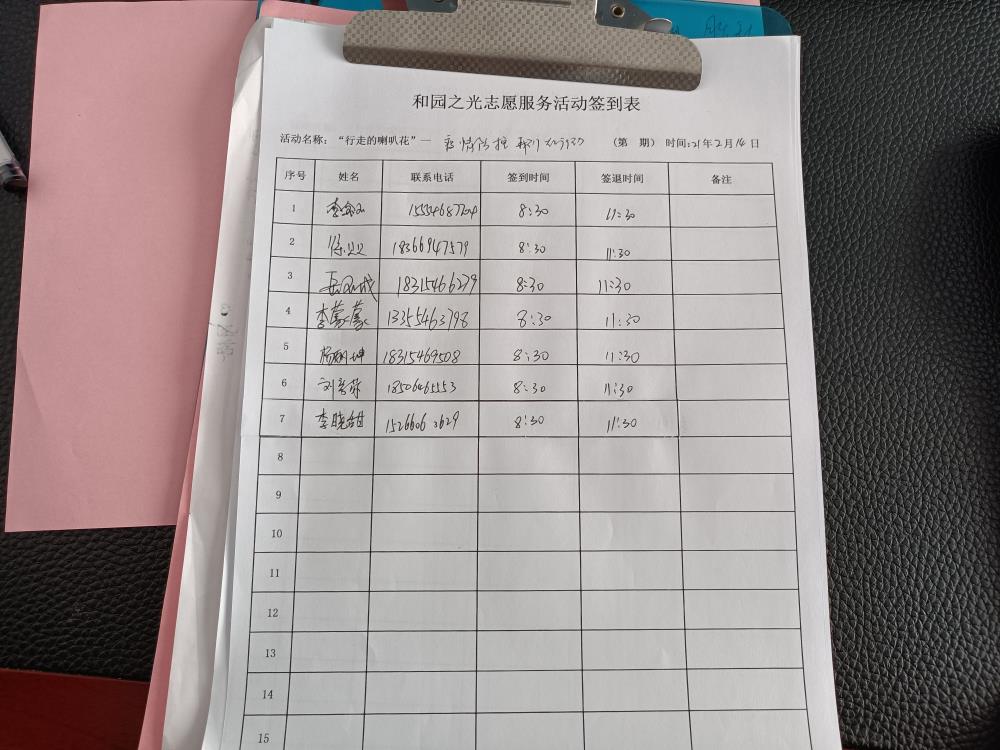 和园之光志愿服务活动签到表
活动名称：“行走的喇叭花”— 疫情防控 我们在行动 （第 期） 时间:21年2月14日
序号 姓名 联系电话 签到时间 签退时间 备注
1 李 15554687704 8:30 11:30
2 陈 18366947579 8:30 11:30
3 18315466279 8:30 11:30
4 李蒙蒙 13355463798 8:30 11:30
5 杨 坤 18315469508 8:30 11:30
6 刘 18506465553 8:30 11:30
7 李晓甜 15266063629 8:30 11:30
8
9
10
11
12
13
14
15